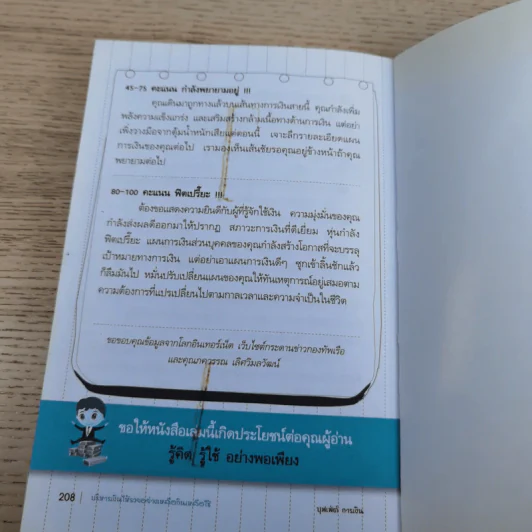 45-75 คะแนน กำลังพยายามอยู่ !!!
คุณเดินมาถูกทางแล้วบนเส้นทางการเงินสายนี้ คุณกำลังเพิ่ม
พลังความแข็งแกร่ง และเสริมสร้างกล้ามเนื้อทางด้านการเงิน แต่อย่า
เพิ่งวางมือจากตุ้มน้ำหนักเสียแต่ตอนนี้ เจาะลึกรายละเอียดแผน
การเงินของคุณต่อไป เรามองเห็นเส้นชัยรอคุณอยู่ข้างหน้าถ้าคุณ
พยายามต่อไป
80-100 คะแนน ฟิตเปรี๊ยะ !!!
ต้องขอแสดงความยินดีกับผู้ที่รู้จักใช้เงิน ความมุ่งมั่นของคุณ
กำลังส่งผลดีออกมาให้ปรากฏ สภาวะการเงินที่ดีเยี่ยม หุ่นกำลัง
ฟิตเปรี๊ยะ แผนการเงินส่วนบุคคลของคุณกำลังสร้างโอกาสที่จะบรรลุ
เป้าหมายทางการเงิน แต่อย่าเอาแผนการเงินดีๆ ซุกเข้าลิ้นชักแล้ว
ก็ลืมมันไป หมั่นปรับเปลี่ยนแผนของคุณให้ทันเหตุการณ์อยู่เสมอตาม
ความต้องการที่แปรเปลี่ยนไปตามกาลเวลาและความจำเป็นในชีวิต
ขอขอบคุณข้อมูลจากโลกอินเทอร์เน็ต เว็บไซต์กระดานข่าวกองทัพเรือ
และคุณภควรรณ เลิศวิมลวัฒน์
ขอให้หนังสือเล่มนี้เกิดประโยชน์ต่อคุณผู้อ่าน
รู้คิด รู้ใช้ อย่างพอเพียง
208
บุฟเฟ่ต์ การเงิน